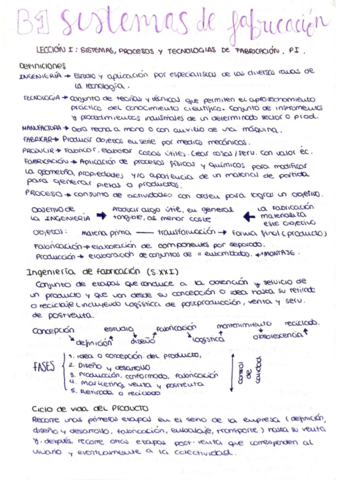 B1 Sistemas de fabricación
LECCIÓN I: SISTEMAS, PROCESOS Y TECNOLOGIAS DE FABRICACIÓN. P.I.
Definiciones
INGENIERÍA → Estudio y aplicación por especialistas de las diversas ramas de
la tecnología.
TECNOLOGIA → conjunto de teorías y técnicas que permiten el aprovechamiento
práctico del conocimiento científico. Conjunto de instrumentos
y procedimientos industriales de un determinado sector o prod.
MANUFACTURA → Obra hecha a mano o con auxilio de una máquina.
FABRICAR → Producir objetos en serie por medios mecánicos.
PRODUCIR → Fabricar, elaborar cosas útiles. Crear cosas/serv. con valor ec.
FABRICACIÓN → Aplicación de procesos físicos y químicos para modificar
la geometría, propiedades y/o apariencia de un material de partida
para generar piezas o productos.
PROCESO → conjunto de actividades con orden para lograr un objetivo.
OBJETIVO DE
LA INGENIERÍA → Producir algo útil, en general
tangible, al menor coste
la fabricación
materializa
este objetivo
Objetos: materia prima → transformación → forma final (producto)
Fabricación → elaboración de componentes por separado.
Producción → elaboración de conjuntos de n ensamblados. → MONTAJE
Ingeniería de Fabricación (S.XXI)
Conjunto de etapas que conduce a la obtención y servicio de
un producto y que van desde su concepción o idea hasta su retirada
o reciclaje incluyendo logística de postproducción, venta y serv.
de postventa.
Concepción estudio fabricación mantenimiento reciclado.
definición diseño logística obsolescencia
FASES
1. idea o concepción del producto,
2. Diseño y desarrollo
3. Producción, conformado, fabricación
4. Marketing, venta y postventa
5. Retirada o reciclado
control de calidad
Ciclo de vida del PRODUCTO
Recorre unas primeras etapas en el seno de la empresa (definición,
diseño y desarrollo, fabricación, embalaje, transporte) hasta su venta
y después recorre otras etapas post-venta que corresponden al
usuario y eventualmente a la colectividad.